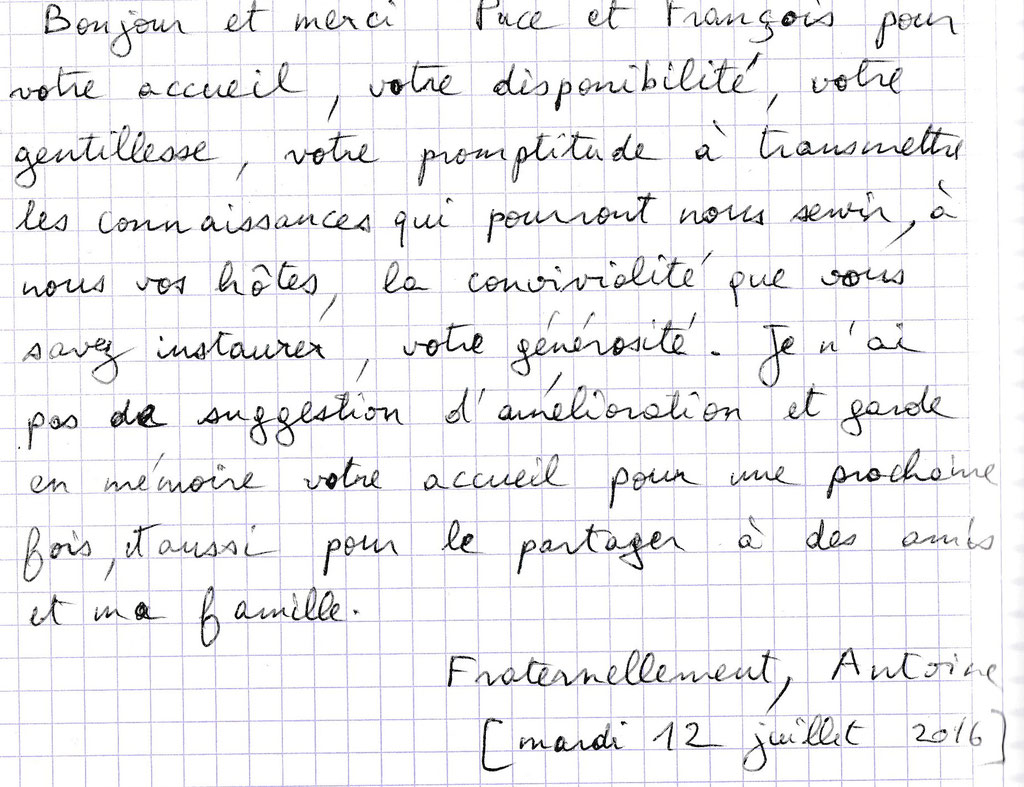 Bonjour et merci Puce et François pour
votre accueil, votre disponibilité, votre
gentillesse, votre promptitude à transmettre
les connaissances qui pourront nous servir, à
nous vos hôtes, la convivialité que vous
savez instaurer, votre générosité. Je n'ai
pas de suggestion d'amélioration et garde
en mémoire votre accueil pour une prochaine
fois, et aussi pour le partager à des amis
et ma famille.
Fraternellement, Antoine
[mardi 12 juillet 2016]